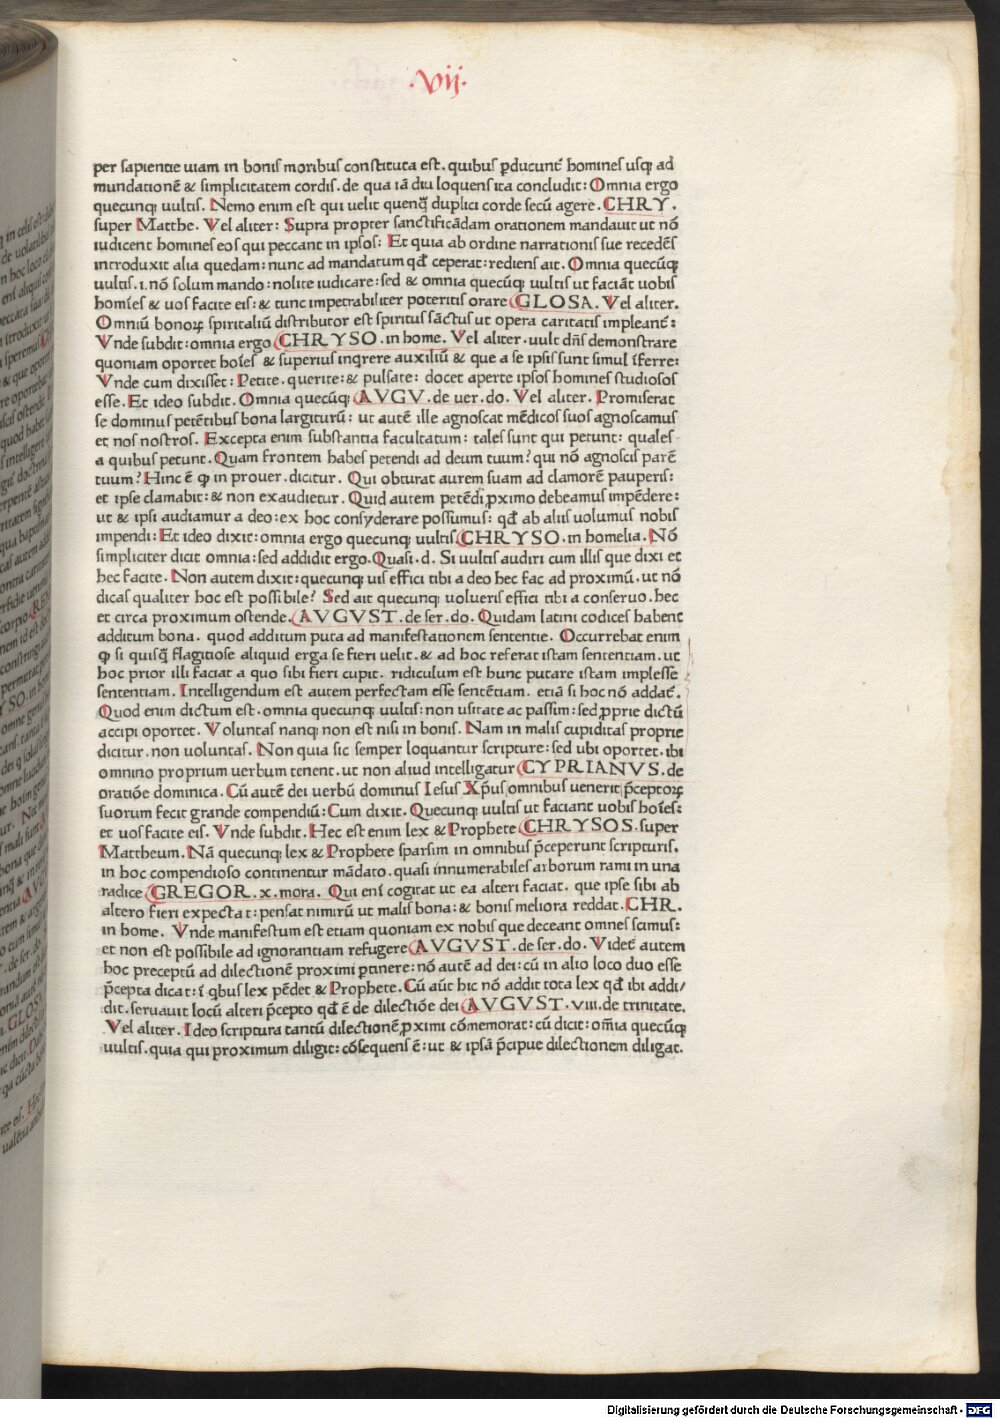 ·Vij·
per sapientie uiam in bonis moribus constituta est. quibus ꝑducunt̃ homines usqꝫ ad
mundationẽ & simplicitatem cordis. de qua iã diu loquens ita concludit: Omnia ergo
quecunqꝫ uultis. Nemo enim est qui uelit quenq̃ duplici corde secũ agere. CHRY.
super Matthe. Vel aliter: Supra propter sanctificãdam orationem mandauit ut nõ
iudicent homines eos qui peccant in ipsos: Et quia ab ordine narrationis sue recedẽs
introduxit alia quedam: nunc ad mandatum qđ ceperat: rediens ait. Omnia quecũqꝫ
uultis. i. nõ solum mando: nolite iudicare: sed & omnia quecũqꝫ uultis ut faciãt uobis
homĩes & uos facite eis: & tunc impetrabiliter poteritis orare GLOSA. Vel aliter.
Omniũ bonoꝝ spiritaliũ distributor est spiritus sãctus ut opera caritatis impleant̃:
Vnde subdit: omnia ergo CHRYSO. in home. Vel aliter. uult dñs demonstrare
quoniam oportet hoĩes & superius inqrere auxiliũ & que a se ipsis sunt simul ĩferre:
Vnde cum dixisset: Petite. querite: & pulsate: docet aperte ipsos homines studiosos
esse. Et ideo subdit. Omnia quecũqꝫ AVGV. de uer. do. Vel aliter. Promiserat
se dominus petẽtibus bona largiturũ: ut autẽ ille agnoscat mẽdicos suos agnoscamus
et nos nostros. Excepta enim substantia facultatum: tales sunt qui petunt: quales
a quibus petunt. Quam frontem habes petendi ad deum tuum? qui nõ agnoscis parẽ
tuum? Hinc ẽ ꝙ in prouer. dicitur. Qui obturat aurem suam ad clamorẽ pauperis:
et ipse clamabit: & non exaudietur. Quid autem petẽdi ꝓximo debeamus impẽdere:
ut & ipsi audiamur a deo: ex hoc consyderare possumus: qđ ab aliis uolumus nobis
impendi: Et ideo dixit: omnia ergo quecunqꝫ uultis CHRYSO. in homelia. Nõ
simpliciter dicit omnia: sed addidit ergo. Quasi. d. Si uultis audiri cum illis que dixi et
hec facite. Non autem dixit: quecunqꝫ uis effici tibi a deo hec fac ad proximũ. ut nõ
dicas qualiter hoc est possibile? Sed ait quecunqꝫ uolueris effici tibi a conseruo. hec
et circa proximum ostende. AVGVST. de ser. do. Quidam latini codices habent
additum bona. quod additum puta ad manifestationem sententie. Occurrebat enim
ꝙ si quisq̃ flagitiose aliquid erga se fieri uelit. & ad hoc referat istam sententiam. ut
hoc prior illi faciat a quo sibi fieri cupit. ridiculum est hunc putare istam implesse
sententiam. Intelligendum est autem perfectam esse sentẽtiam. etiã si hoc nõ addat̃.
Quod enim dictum est. omnia quecunqꝫ uultis: non usitate ac passim: sed ꝓprie dictũ
accipi oportet. Voluntas nanqꝫ non est nisi in bonis. Nam in malis cupiditas proprie
dicitur. non uoluntas. Non quia sic semper loquantur scripture: sed ubi oportet. ibi
omnino proprium uerbum tenent. ut non aliud intelligatur CYPRIANVS. de
oratiõe dominica. Cũ autẽ dei uerbũ dominus Iesus Xp̃us omnibus uenerit p̃ceptoꝝ
suorum fecit grande compendiũ: Cum dixit. Quecunqꝫ uultis ut faciant uobis hoĩes:
et uos facite eis. Vnde subdit. Hec est enim lex & Prophete CHRYSOS. super
Mattheum. Nã quecunqꝫ lex & Prophete sparsim in omnibus p̃ceperunt scripturis.
in hoc compendioso continentur mãdato. quasi innumerabiles arborum rami in una
radice GREGOR. x. mora. Qui enĩ cogitat ut ea alteri faciat. que ipse sibi ab
altero fieri expectat: pensat nimirũ ut malis bona: & bonis meliora reddat. CHR.
in home. Vnde manifestum est etiam quoniam ex nobis que deceant omnes scimus:
et non est possibile ad ignorantiam refugere AVGVST. de ser. do. Videt̃ autem
hoc preceptũ ad dilectionẽ proximi ꝑtinere: nõ autẽ ad dei: cũ in alio loco duo esse
p̃cepta dicat: ĩ qbus lex pẽdet & Prophete. Cũ aũt hic nõ addit tota lex qđ ibi addi/
dit. seruauit locũ alteri p̃cepto qđ ẽ de dilectiõe dei AVGVST. viii. de trinitate.
Vel aliter. Ideo scriptura tantũ dilectionẽ ꝓximi cõmemorat: cũ dicit: om̃ia quecũqꝫ
uultis. quia qui proximum diligit: cõsequens ẽ: ut & ipsã p̃cipue dilectionem diligat.
Digitalisierung gefördert durch die Deutsche Forschungsgemeinschaft - DFG